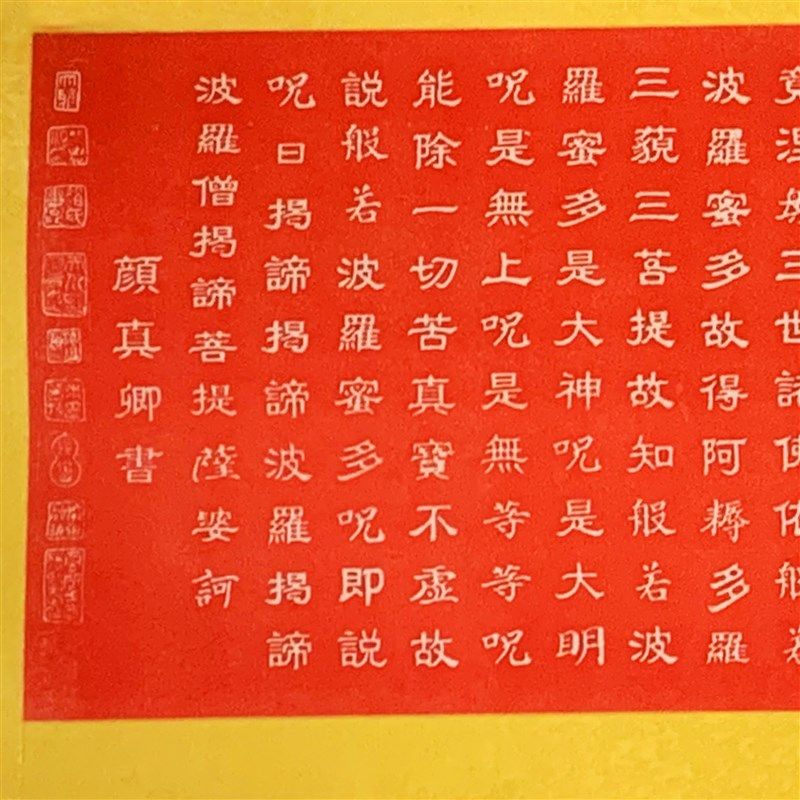 竟涅槃三世諸佛依般若
波羅蜜多故得阿耨多羅
三藐三菩提故知般若波
羅蜜多是大神呪是大明
呪是無上呪是無等等呪
能除一切苦真實不虛故
説般若波羅蜜多呪即説
呪曰揭諦揭諦波羅揭諦
波羅僧揭諦菩提薩婆訶
顏真卿書